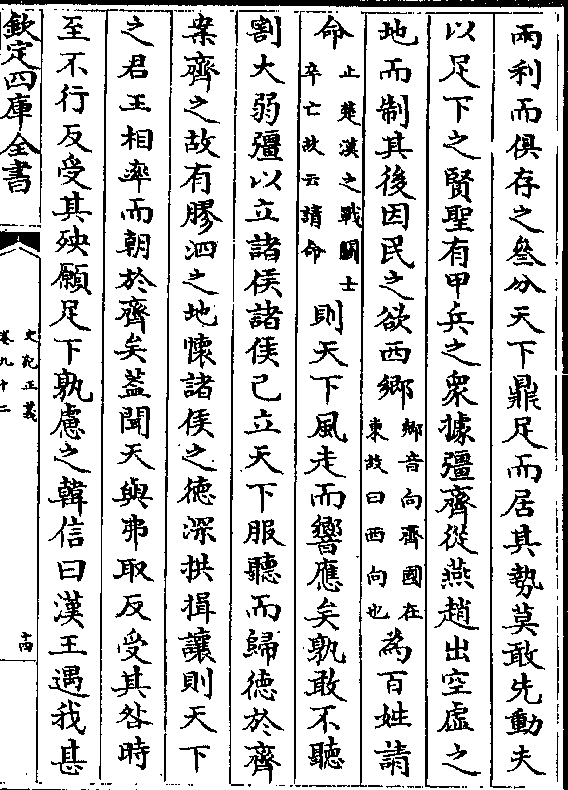 兩利而俱存之叄分天下鼎足而居其勢莫敢先動夫
以足下之賢聖有甲兵之衆據彊齊從燕趙出空虛之
地而制其後因民之欲西鄉鄉音向齊國在東故曰西向也為百姓請
命止楚漢之戰鬬士卒亡故云請命則天下風走而響應矣孰敢不聽
割大弱彊以立諸侯諸侯已立天下服聽而歸德於齊
案齊之故有膠泗之地懷諸侯之德深拱揖讓則天下
之君王相率而朝於齊矣葢聞天與弗取反受其咎時
至不行反受其殃願足下孰慮之韓信曰漢王遇我甚
欽定四庫全書
史記正義
卷九十二
十四